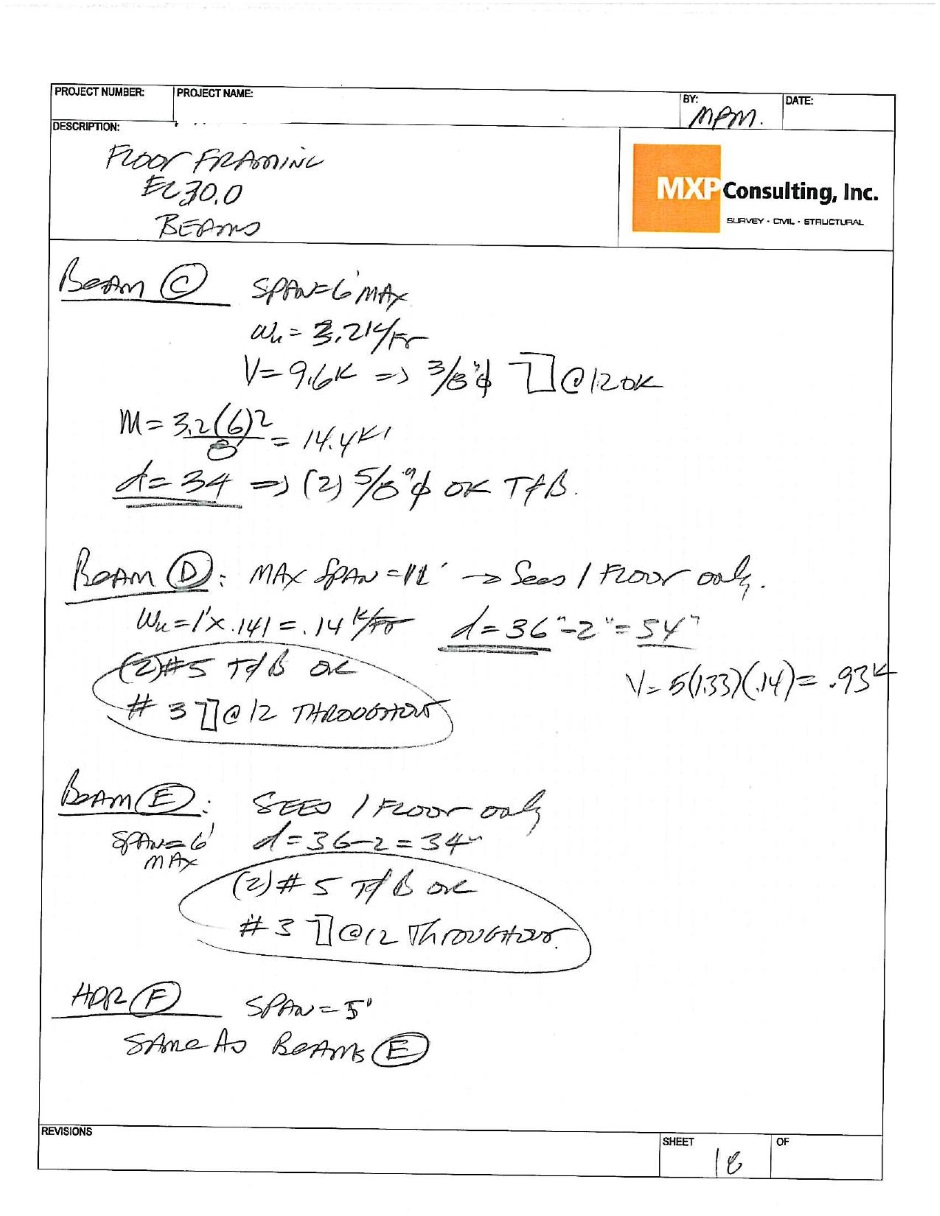 PROJECT NUMBER:
PROJECT NAME:
BY:
MPM.
DATE:
DESCRIPTION:
FLOOR FRAMING
EL 30.0
BEAMS
MXP Consulting, Inc.
SURVEY - CIVIL - STRUCTURAL
BEAM C SPAN = 6' MAX
Wu = 3.2 K/FT
V = 9.6K => 3/8"ϕ @ 12 OK
M = 3.2(6)²/8 = 14.4 K'
d = 34 => (2) 5/8"ϕ OK T&B.
BEAM D: MAX SPAN = 11' → Sees 1 Floor only.
Wu = 1' x .141 = .14 K/FT d = 36"-2" = 34"
(2)#5 T&B OK V = 5(1.33)(.14) = .93K
#3 @ 12 THROUGHOUT
BEAM E: SEES 1 FLOOR only
SPAN = 6' d = 36-2 = 34"
MAX
(2)#5 T&B OK
#3 @ 12 THROUGHOUT.
HDR F SPAN = 5'
SAME AS BEAMS E
REVISIONS
SHEET
18
OF